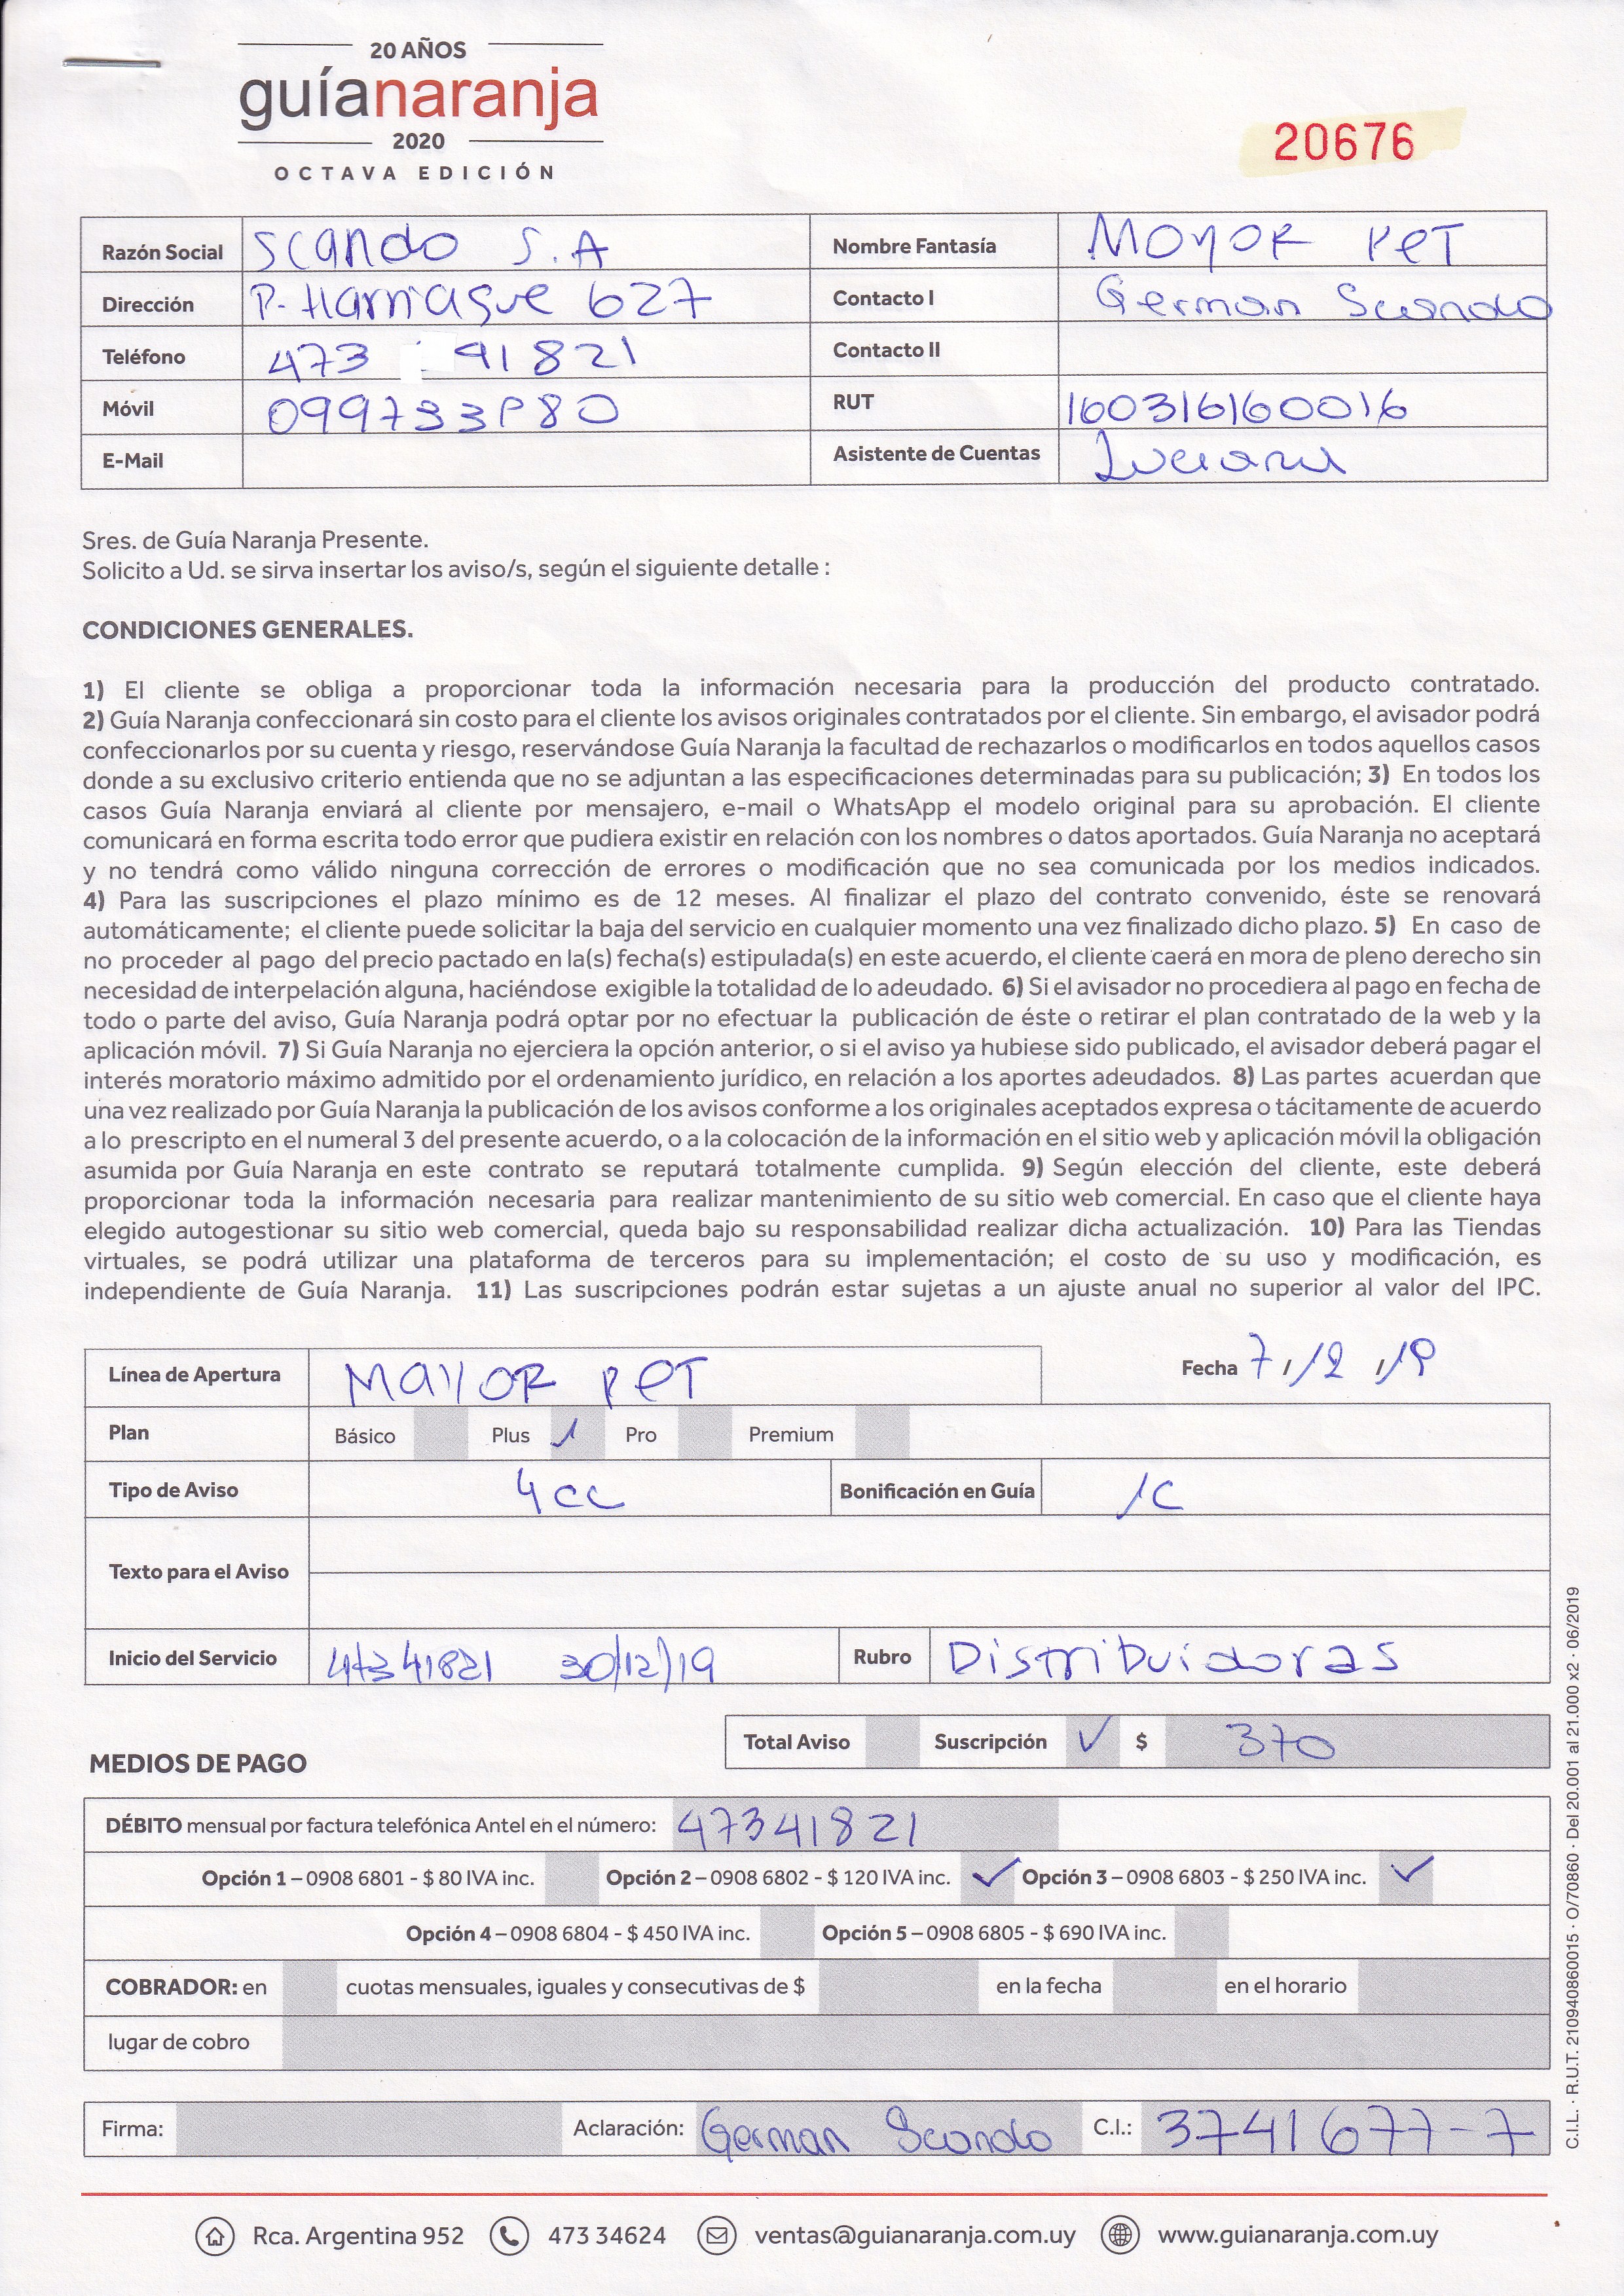 20 AÑOS
guíanaranja
2020
OCTAVA EDICIÓN
20676
Razón Social Scando S.A Nombre Fantasía MAYOR PET
Dirección P. Harriague 627 Contacto I German Scando
Teléfono 473 41821 Contacto II
Móvil 099733980 RUT 160316160016
E-Mail Asistente de Cuentas Luciana
Sres. de Guía Naranja Presente.
Solicito a Ud. se sirva insertar los aviso/s, según el siguiente detalle :
CONDICIONES GENERALES.
1) El cliente se obliga a proporcionar toda la información necesaria para la producción del producto contratado.
2) Guía Naranja confeccionará sin costo para el cliente los avisos originales contratados por el cliente. Sin embargo, el avisador podrá
confeccionarlos por su cuenta y riesgo, reservándose Guía Naranja la facultad de rechazarlos o modificarlos en todos aquellos casos
donde a su exclusivo criterio entienda que no se adjuntan a las especificaciones determinadas para su publicación; 3) En todos los
casos Guía Naranja enviará al cliente por mensajero, e-mail o WhatsApp el modelo original para su aprobación. El cliente
comunicará en forma escrita todo error que pudiera existir en relación con los nombres o datos aportados. Guía Naranja no aceptará
y no tendrá como válido ninguna corrección de errores o modificación que no sea comunicada por los medios indicados.
4) Para las suscripciones el plazo mínimo es de 12 meses. Al finalizar el plazo del contrato convenido, éste se renovará
automáticamente; el cliente puede solicitar la baja del servicio en cualquier momento una vez finalizado dicho plazo. 5) En caso de
no proceder al pago del precio pactado en la(s) fecha(s) estipulada(s) en este acuerdo, el cliente caerá en mora de pleno derecho sin
necesidad de interpelación alguna, haciéndose exigible la totalidad de lo adeudado. 6) Si el avisador no procediera al pago en fecha de
todo o parte del aviso, Guía Naranja podrá optar por no efectuar la publicación de éste o retirar el plan contratado de la web y la
aplicación móvil. 7) Si Guía Naranja no ejerciera la opción anterior, o si el aviso ya hubiese sido publicado, el avisador deberá pagar el
interés moratorio máximo admitido por el ordenamiento jurídico, en relación a los aportes adeudados. 8) Las partes acuerdan que
una vez realizado por Guía Naranja la publicación de los avisos conforme a los originales aceptados expresa o tácitamente de acuerdo
a lo prescripto en el numeral 3 del presente acuerdo, o a la colocación de la información en el sitio web y aplicación móvil la obligación
asumida por Guía Naranja en este contrato se reputará totalmente cumplida. 9) Según elección del cliente, este deberá
proporcionar toda la información necesaria para realizar mantenimiento de su sitio web comercial. En caso que el cliente haya
elegido autogestionar su sitio web comercial, queda bajo su responsabilidad realizar dicha actualización. 10) Para las Tiendas
virtuales, se podrá utilizar una plataforma de terceros para su implementación; el costo de su uso y modificación, es
independiente de Guía Naranja. 11) Las suscripciones podrán estar sujetas a un ajuste anual no superior al valor del IPC.
Línea de Apertura MAYOR PET Fecha 7/12/19
Plan Básico Plus Pro Premium
Tipo de Aviso 4cc Bonificación en Guía 1C
Texto para el Aviso
Inicio del Servicio 47341821 30/12/19 Rubro Distribuidoras
Total Aviso Suscripción ✓ $ 370
MEDIOS DE PAGO
DÉBITO mensual por factura telefónica Antel en el número: 47341821
Opción 1 – 0908 6801 - $ 80 IVA inc. Opción 2 – 0908 6802 - $ 120 IVA inc. ✓ Opción 3 – 0908 6803 - $ 250 IVA inc. ✓
Opción 4 – 0908 6804 - $ 450 IVA inc. Opción 5 – 0908 6805 - $ 690 IVA inc.
COBRADOR: en cuotas mensuales, iguales y consecutivas de $ en la fecha en el horario
lugar de cobro
Firma: Aclaración: German Scando C.I.: 3741677-7
Rca. Argentina 952 473 34624 ventas@guianaranja.com.uy www.guianaranja.com.uy
C.I.L. · R.U.T. 210940860015 · O/70860 · Del 20.001 al 21.000 x2 · 06/2019